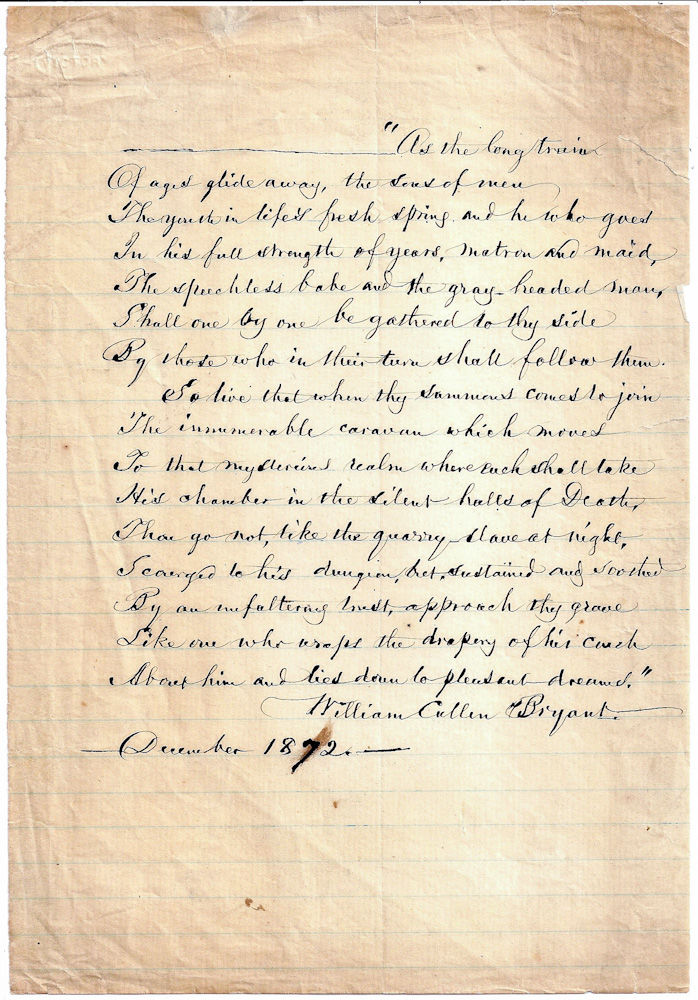 "As the long train
Of ages glide away, the sons of men
The youth in life's fresh spring and he who goes
In his full strength of years, matron and maid,
The speechless babe and the gray-headed man,
Shall one by one be gathered to thy side
By those who in their turn shall follow them.
So live that when thy summons comes to join
The innumerable caravan which moves
To that mysterious realm where each shall take
His chamber in the silent halls of Death,
Thou go not, like the quarry-slave at night,
Scourged to his dungeon, but, sustained and soothed
By an unfaltering trust, approach thy grave
Like one who wraps the drapery of his couch
About him and lies down to pleasant dreams."
William Cullen Bryant.
— December 1872. —